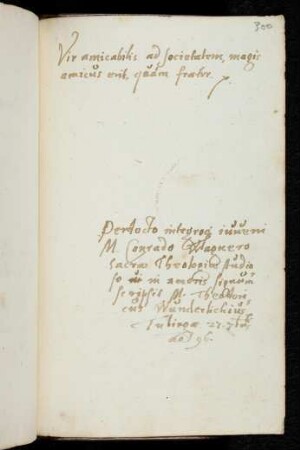 300
Vir amicabilis ad societatem, magis
amicus erit, quàm frater.
Per docto integroq iuveni
M. Conrado Wagnero
sacrae Theologiae studio
so in amoris signum
scripsit M. Theodori
cus Wunderlichius
Tubingae 27. 7
96.